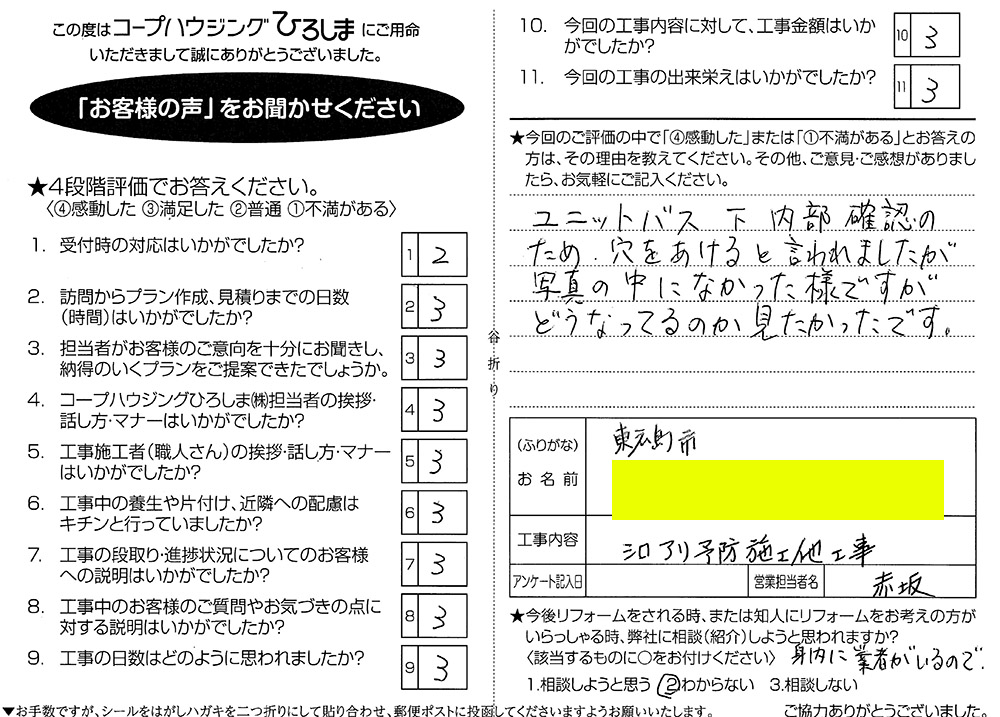 この度はコープハウジングひろしまにご用命
いただきまして誠にありがとうございました。
「お客様の声」をお聞かせください
★4段階評価でお答えください。
〈④感動した ③満足した ②普通 ①不満がある〉
1. 受付時の対応はいかがでしたか? 1 2
2. 訪問からプラン作成、見積りまでの日数
(時間)はいかがでしたか? 2 3
3. 担当者がお客様のご意向を十分にお聞きし、
納得のいくプランをご提案できたでしょうか。 3 3
4. コープハウジングひろしま㈱担当者の挨拶・
話し方・マナーはいかがでしたか? 4 3
5. 工事施工者(職人さん)の挨拶・話し方・マナー
はいかがでしたか? 5 3
6. 工事中の養生や片付け、近隣への配慮は
キチンと行っていましたか? 6 3
7. 工事の段取り・進捗状況についてのお客様
への説明はいかがでしたか? 7 3
8. 工事中のお客様のご質問やお気づきの点に
対する説明はいかがでしたか? 8 3
9. 工事の日数はどのように思われましたか? 9 3
▼お手数ですが、シールをはがしハガキを二つ折りにして貼り合わせ、郵便ポストに投函してくださいますようお願いいたします。
谷折り
10. 今回の工事内容に対して、工事金額はいか
がでしたか? 10 3
11. 今回の工事の出来栄えはいかがでしたか? 11 3
★今回のご評価の中で「④感動した」または「①不満がある」とお答えの
方は、その理由を教えてください。その他、ご意見・ご感想がありまし
たら、お気軽にご記入ください。
ユニットバス 下 内部 確認の
ため、穴をあけると言われましたが
写真の中になかった様ですが
どうなってるのか見たかったです。
(ふりがな) 東広島市
お名前
工事内容 シロアリ予防施工他工事
アンケート記入日 営業担当者名 赤坂
★今後リフォームをされる時、または知人にリフォームをお考えの方が
いらっしゃる時、弊社に相談(紹介)しようと思われますか?
〈該当するものに○をお付けください〉 身内に業者がいるので。
1.相談しようと思う ②わからない 3.相談しない
ご協力ありがとうございました。